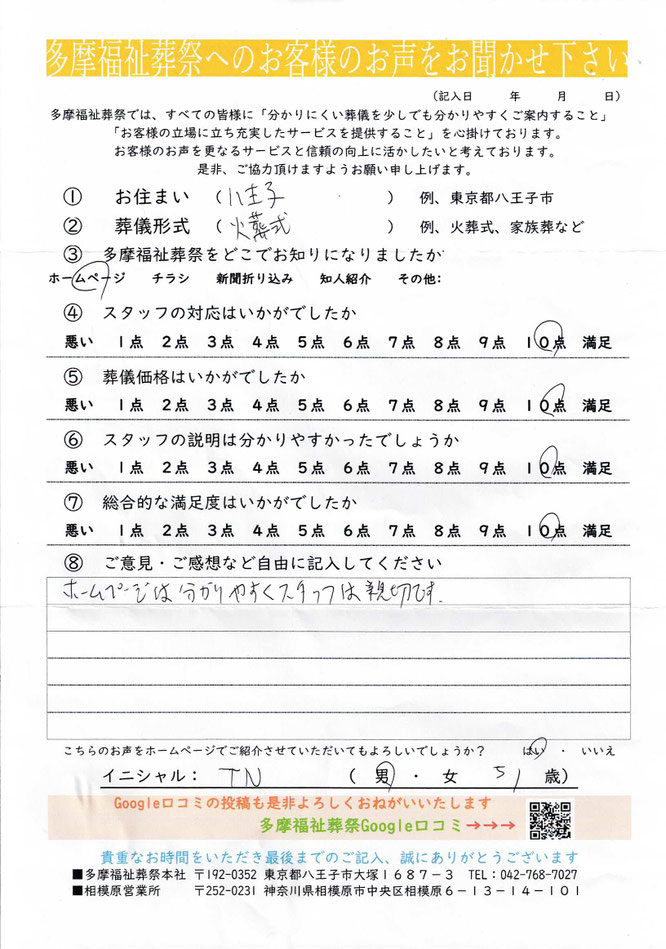 多摩福祉葬祭へのお客様のお声をお聞かせ下さい
（記入日　　年　　月　　日）
多摩福祉葬祭では、すべての皆様に「分かりにくい葬儀を少しでも分かりやすくご案内すること」
「お客様の立場に立ち充実したサービスを提供すること」を心掛けております。
お客様のお声を更なるサービスと信頼の向上に活かしたいと考えております。
是非、ご協力頂けますようお願い申し上げます。
① お住まい （八王子 ） 例、東京都八王子市
② 葬儀形式 （火葬式 ） 例、火葬式、家族葬など
③ 多摩福祉葬祭をどこでお知りになりましたか
ホームページ チラシ 新聞折り込み 知人紹介 その他：
④ スタッフの対応はいかがでしたか
悪い １点 ２点 ３点 ４点 ５点 ６点 ７点 ８点 ９点 １０点 満足
⑤ 葬儀価格はいかがでしたか
悪い １点 ２点 ３点 ４点 ５点 ６点 ７点 ８点 ９点 １０点 満足
⑥ スタッフの説明は分かりやすかったでしょうか
悪い １点 ２点 ３点 ４点 ５点 ６点 ７点 ８点 ９点 １０点 満足
⑦ 総合的な満足度はいかがでしたか
悪い １点 ２点 ３点 ４点 ５点 ６点 ７点 ８点 ９点 １０点 満足
⑧ ご意見・ご感想など自由に記入してください
ホームページは分かりやすくスタッフは親切です.
こちらのお声をホームページでご紹介させていただいてもよろしいでしょうか？ はい ・ いいえ
イニシャル： TN （ 男 ・ 女 51 歳）
Google口コミの投稿も是非よろしくおねがいいたします
多摩福祉葬祭Google口コミ→→→
貴重なお時間をいただき最後までのご記入、誠にありがとうございます
■多摩福祉葬祭本社 〒192-0352 東京都八王子市大塚１６８７－３ TEL：042-768-7027
■相模原営業所 〒252-0231 神奈川県相模原市中央区相模原６－１３－１４－１０１